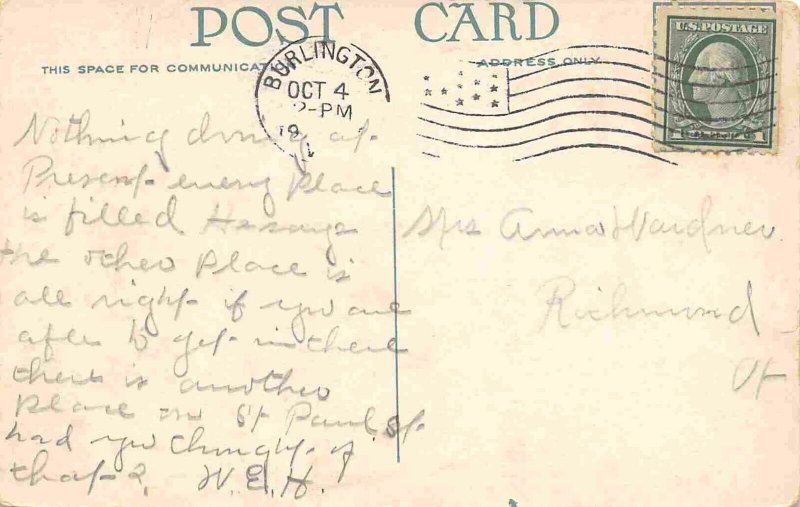 POST CARD
THIS SPACE FOR COMMUNICATI
ADDRESS ONLY
BURLINGTON
OCT 4
2-PM
19
U.S. POSTAGE
1
Nothing doing at
Present every Place
is filled He says
the other Place is
all right if you are
after to get in there
there is another
Place on St Paul St
had you thought of
that? W.E.H.
Mrs Anna Wardner
Richmond
Vt